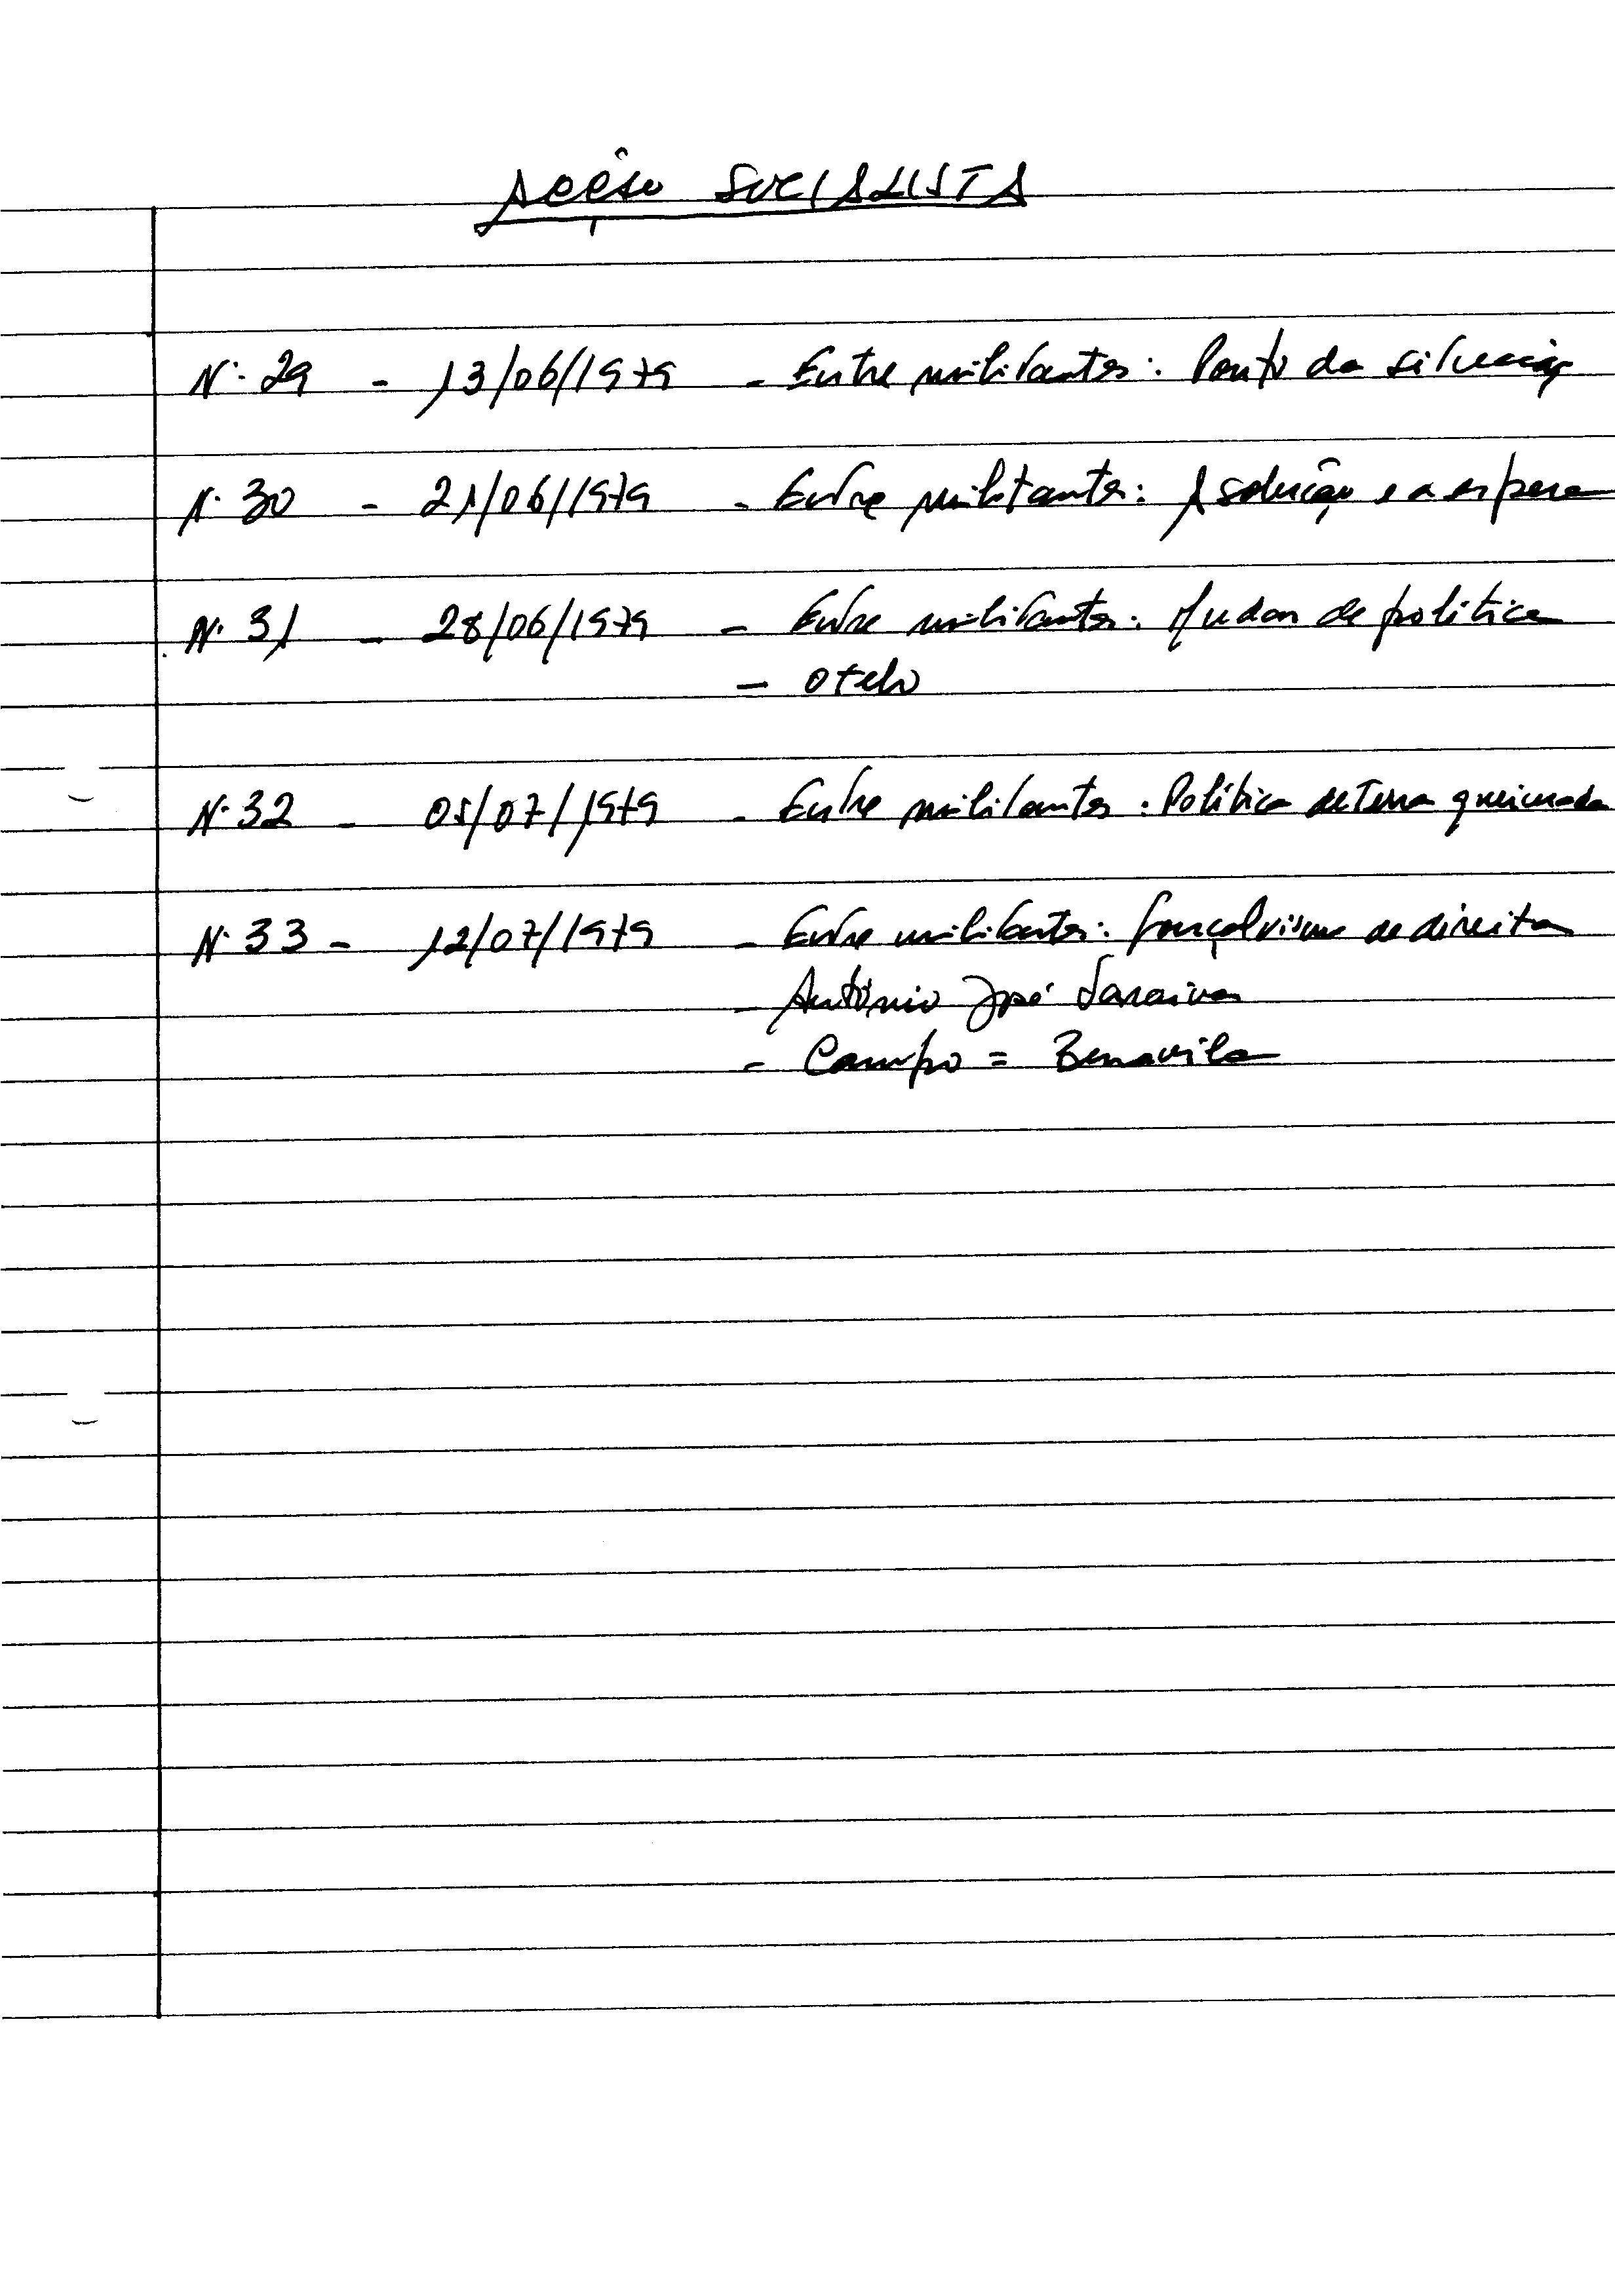 Acção SOCIALISTA
Nº 29 - 13/06/1979 - Entre militantes: Ponto da situação
Nº 30 - 21/06/1979 - Entre militantes: A solução e a espera
Nº 31 - 28/06/1979 - Entre militantes: Mudar de política
- Otelo
Nº 32 - 05/07/1979 - Entre militantes: Política de Terra queimada
Nº 33 - 12/07/1979 - Entre militantes: Gonçalvismo de direita
- António José Saraiva
- Campo = Benavila